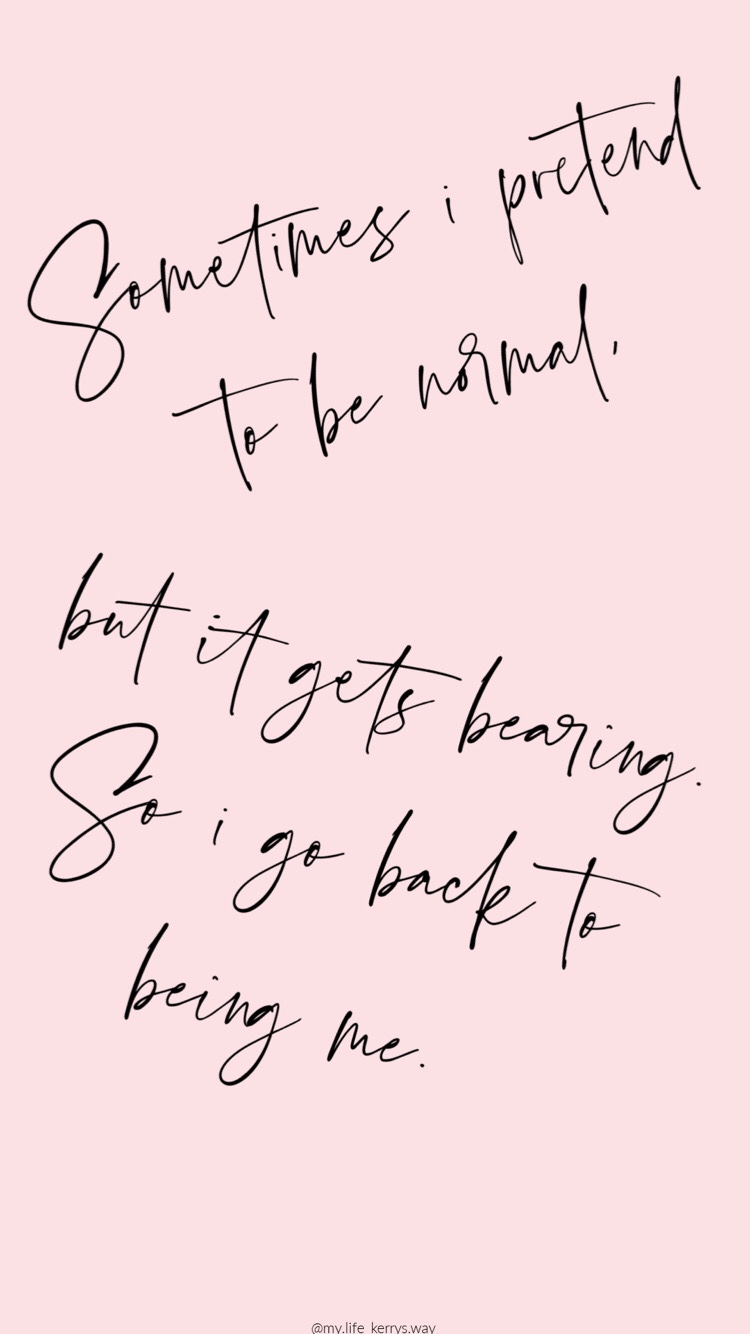 Sometimes i pretend
to be normal,
but it gets bearing.
So i go back to
being me.
@my.life_kerrys.way